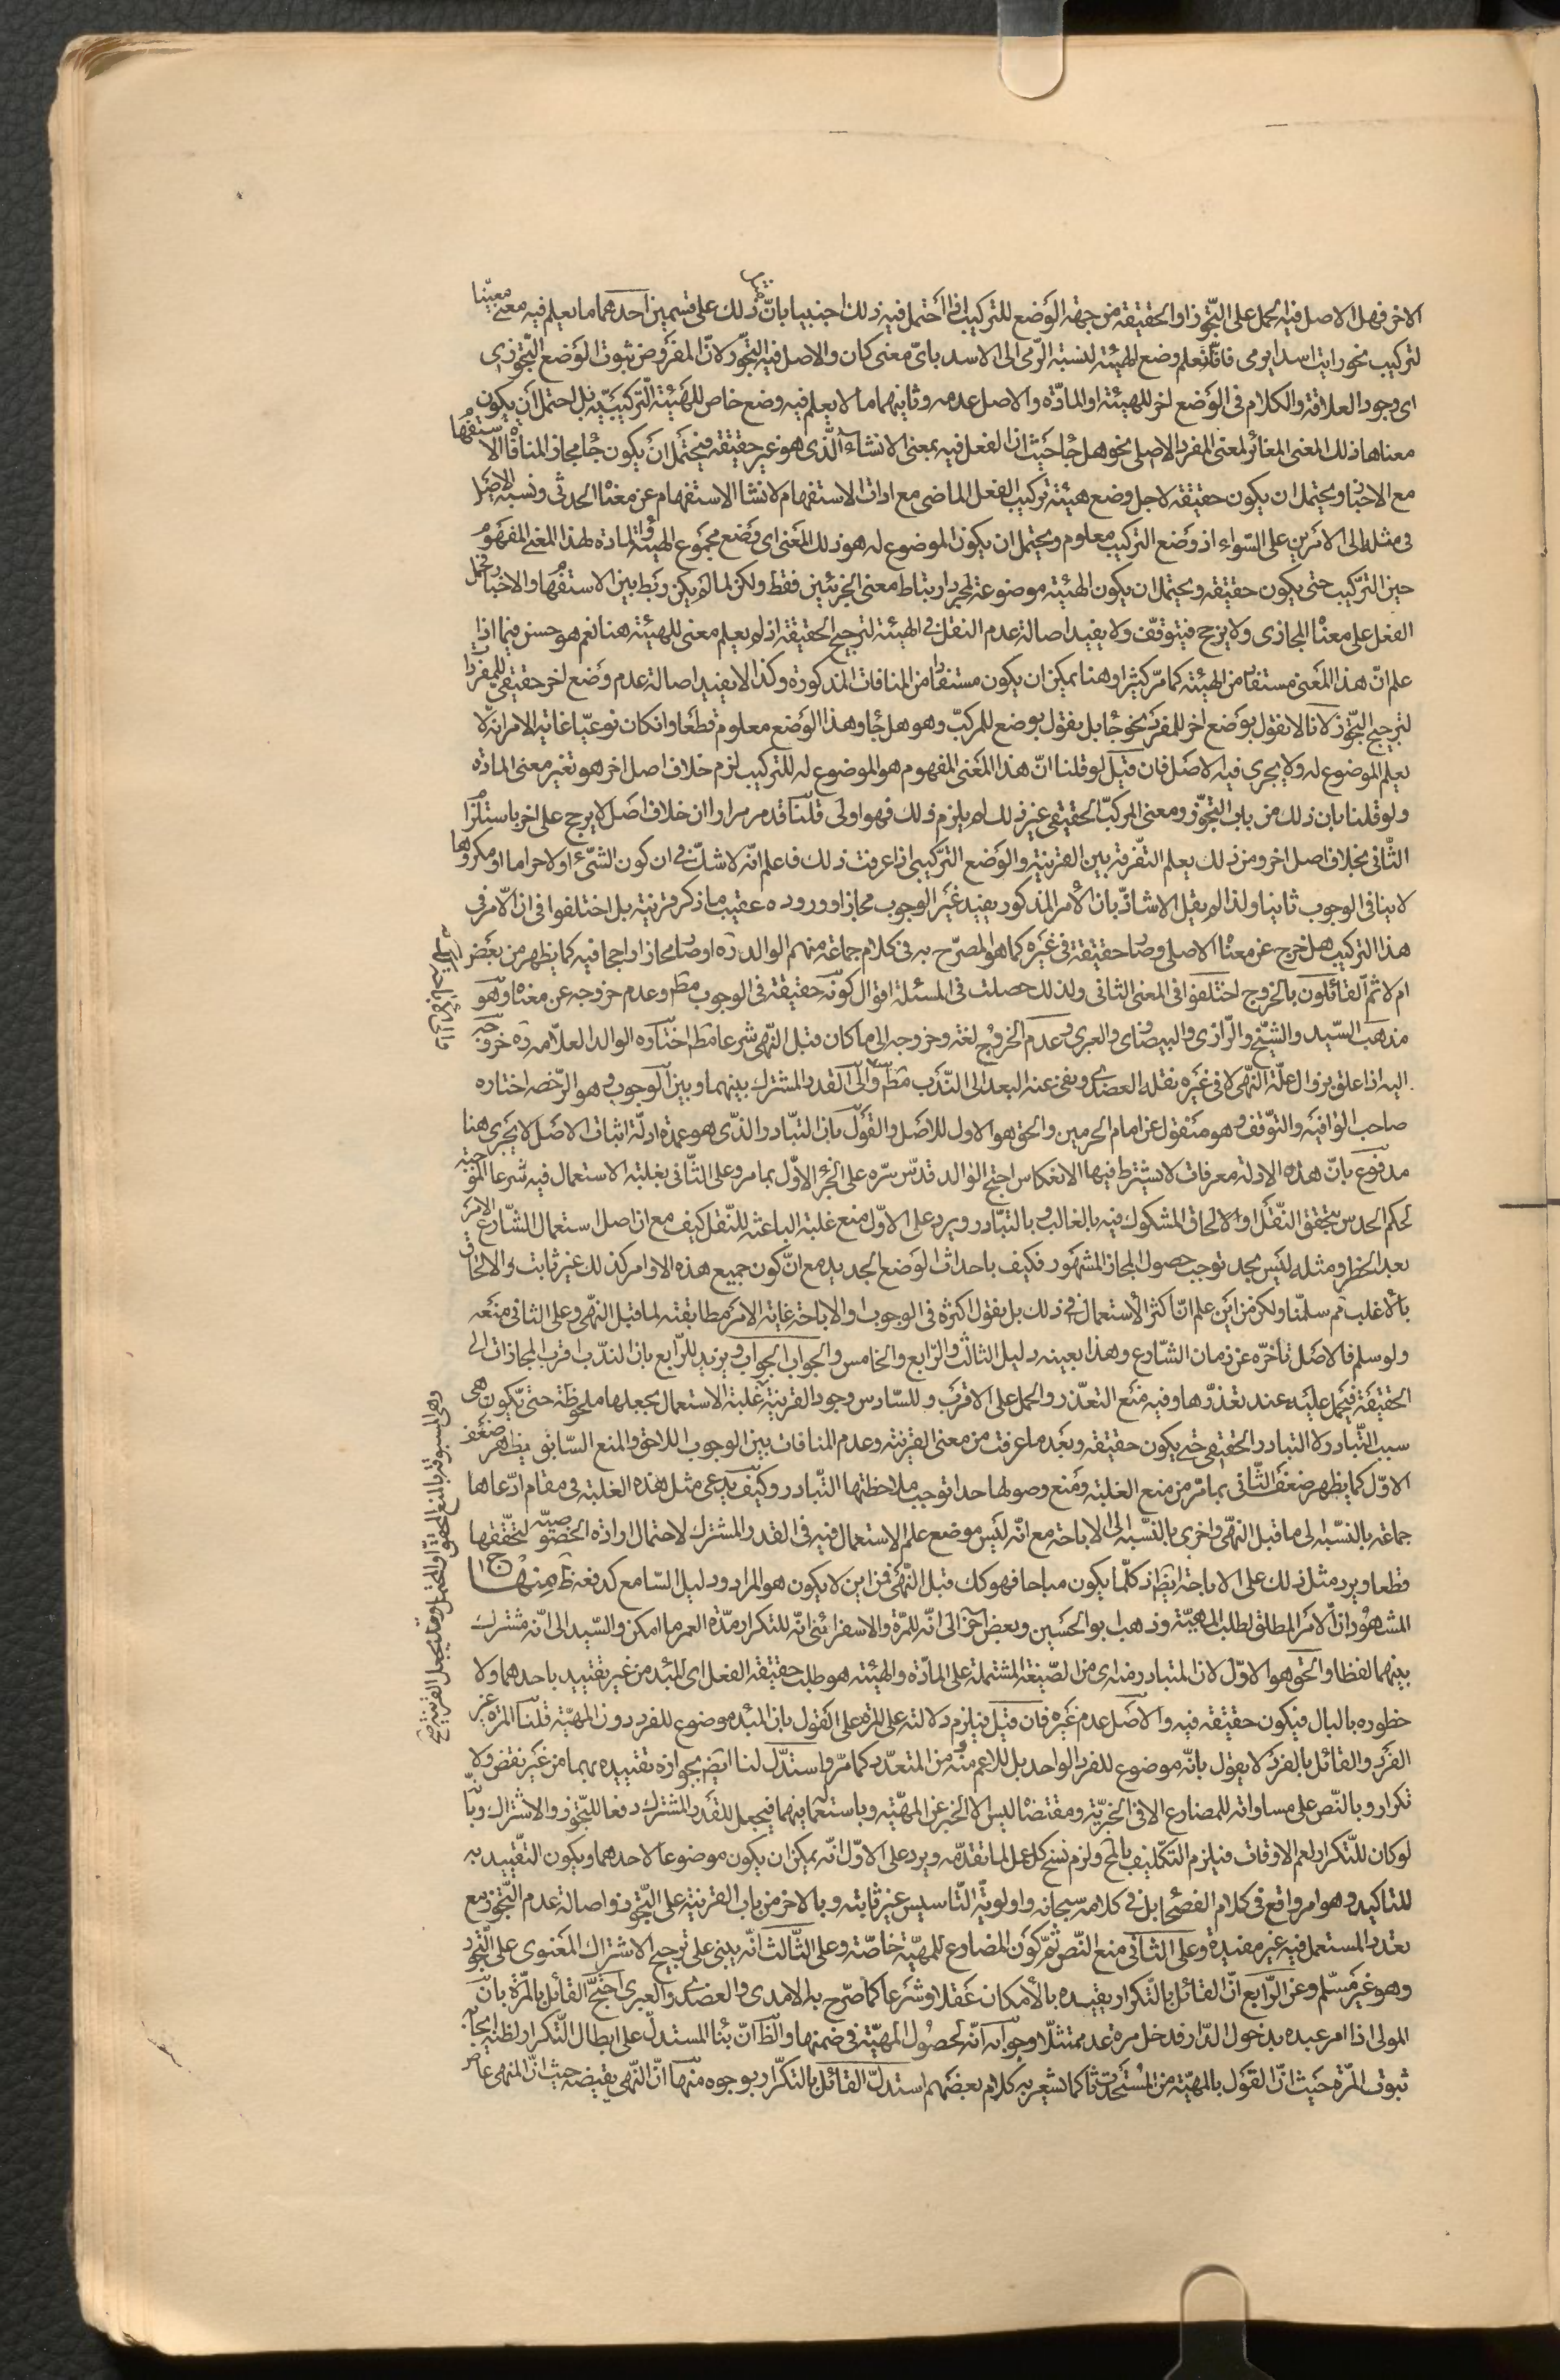 الاخر فهل الاصل فيه الحمل على التّجوّز او الحقيقة من جهة الوَضع للتركيب فى ما احتمل فيه ذلك اجنبيا بانّ ذلك على قسمين احدهما ما يعلم فيه معنى معيّنا
لتركيب نحو رايت اسدا يرمى فانّا نعلم وضع الهيئة لنسبة الرّمى الى الاسد باىّ معنى كان والاصل فيه التجوّز لانّ المفرَوض ثبوت الوَضع التّجوّزى
اى وجود العلاقة والكلام فى الوَضع اخر للهيئة او المادّة والاصل عدمه وثانيهما ما لا يعلم فيه وضع خاص للهَيئة التّركيبَيّة بل احتمل ان يكون
معناها ذلك المعنى المغائر لمعنى المفرد الاصلى نحو هل جُا حيَث ان الفعل فيه بمعنى الانشاء الّذى هو غير حقيقة فيحتَمل انَ يكون جُا مجاز المنافاة الاستفُها
مع الاخبُا ويحتمل ان يكون حقيقة لاجل وضع هيئة تركيب الفعل الماضى مع ادات الاستفهام لانشا الاستفهام عن معنُا الحدثى ونسبة الاصَل
فى مثله الى الامرَين على السّواء اذ وَضع التركيب معلوم ويحتمل ان يكون الموضوع له هو ذلك المَعنى اى وَضع مجمَوع الهيئة والمادة لهذا المعنى المفهَوم
حين التّركيب حتى يكون حقيقة ويحتمل ان يكون الهيئة موضوعة لمجرد ارتباط معنى الجزئين فقط ولكن لما لَم يكن رَبط بين الاستفُها والاخبا وتحمل
الفعل على معنُا المجازى ولا يرجح فيتوقّف ولا يفيد اصالة عدم النقل فى الهيئة لترجيح الحقيقة اذ لم يعلم معنى للهيئة هنا نعم هو حسن فيما اذا
علم انّ هذا المَعنى مستفاد من الهيئة كما مرّ كثيرا وهنا يمكن ان يكون مستفادا من المنافات المذكورة وكذا لا يفيد اصالة عدم وَضع اخر حقيقى للمفرد
لترجيح التجّوز لانا لا نقول بوَضع اخر للمفرَد نحو جُا بل نقول بوضع للمركبّ وهو هل جُا وهذا الوَضع معلوم قطعَا وان كان نوعيّا غاية الامر انّه لا
يعلم الموضوع له ولا يجرى فيه الاصَل فان قيَل لو قلنا انّ هذا المَعنى المفهوم هو الموضوع له للتركيب لزم خلاف اصل اخر هو تغير معنى المادّه
ولو قلنا بان ذلك من باب التجّوز ومعنى المركبّ الحقيقى غير ذلك لم يلزم ذلك فهو اولى قلنا قد مر مرارا ان خلاف اصَل لا يرجح على اخر باستلزا
الثّانى بخلاف اصل اخر ومن ذلك يعلم التفّرقة بين القرينة والوَضع التركّيبى اذا عرفت ذلك فاعلم انّه لا شكّ فى ان كون الشّئ اولا حراما او مكروها
لا ينافى الوجوب ثانيا ولذا لم يقيل الاشاذّ بان الأمر المذكور يفيد غير الوجوب مجازا ووروده عقيب ما ذكر قرينة بل اختلفوا فى ان الامر فى
هذا التركيب هل خرج عن معنُا الاصلى وصُا حقيقة فى غيَره كما هو المصرّح به فى كلام جماعة منهم الوالد ره او صُا مجازا راجحا فيه كما يظهر من بعَض
ام لا ثمّ القائلون بالخروج اختلفوا فى المعنى الثانى ولذلك حصلت فى المسئلة اقوال كونه حقيقة فى الوجوب مطَ وعدم خروجه عن معنُا وهو
مذهب السّيد والشيّخ والرّازى والبيضاوى والعبرى وعدَم الخروُج لغة وخروجه الى ما كان قبل النّهى شرعا مطَ اختاره الوالد العلاّمه ره خروجه
اليه اذا علق بزوال علّة النهّى لا فى غيَره نقله العضدى ونفى عنه البعد الى النّدَب مطَ والى القدر المشترك بينهما وبين الوجوب وهو الرّخصه اختاره
صاحب الوَافية والتوّقف وهو منَقول عن امام الحرمين والحق هو الاول للاصَل والقوَل بان التبّادر الذّى هو عمدة ادلّة اثبات الاصَل لا يجَرى هنا
مدفوَع بانّ هذه الادلة معرفات لا يشترط فيها الانعكاس احتج الوَالد قدّس سرّه على الجُزء الاوّل بما مر وعلى الثّانى بغلبة الاستعمال فيه شرعا الموجَبة
لحكم الحدس بتحقق النّقَل او الالحاق المشكوك فيه بالغالب وبالتبّادر ويرد على الاوّل منع غلبة الباعثه للنّقل كيف مع ان اصل استعمال الشّارع الامر
بعد الخطر ومثله ليَس بحد توجب حصول المجاز المشهَور فكيف باحداث الوَضع الجديد مع انّ كون جميع هذه الاوامر كذلك غير ثابت والالحاق
بالأغلب ثم سلمّنا ولكن من ايَن علم انّ اكثر الأستعمال فى ذلك بل يقول اكثره فى الوجوب والاباحة غاية الامرَ مطابقته لما قبل النهّى وعلى الثانى منعَه
ولو سلم فالاصَل تأخرّه عن زمان الشّارع وهذا بعينه دليل الثالث والرّابع والخامس والجواب الجَواب ويزيد للرّابع بان الندّب اقرب المجازات الى
الحقيقَة فيحمَل عليَه عند تعذرّها وفيه منَع التعذّر والحمل على الاقرَب وللسّادس وجود القرينة غَلبة الاستعمال يجعلها ملحوظَة حتىّ يكون هى
سبب التبّادر لا التبادر الحقيقى حتى يكون حقيقة وبعَد ما عرفت من معنى القرينة وعدم المنافات بين الوجوب اللاحق والمنع السّابق يظَهر ضعَف
الاوّل كما يظهر ضعفَ الثّانى بما مّر من منع الغلبة ومَنع وصولها حدا توجب ملاحظتها التّبادر وكيفَ يدّعى مثل هذه الغلبة فى مقام ادّعاها
جماعة بالنسّبة الى ما قبل النهّى واخرى بالنسّبة الى الاباحة مع انّه ليَس موضع علم الاستعمال فيه فى القدر المشترك لاحتمال ارادة الخصَوصيّة لتحّققها
قطعا ويرد مثل ذلك على الاباحة ايضَ اذ كلّما يكون مباحا فهو كك قبل النّهَى فمن اين لا يكون هو المراد ودليل السّا مع كدفعه ظَ منهاج
المشهُور انّ الامَر المطلق لطلب الماهيّة وذهب ابو الحسَين وبعض اخرَ الى انّه للمرّة والاسفرائنى انّه للتكرار مدّة العمر ما امكن والسّيد الى انّه مشترك
بينهما لفظا والحَق هو الاوّل لان المتبادر منه اى من الصّيغة المشتملة على المادّة والهيئة هو طلب حقيقة الفعل اى المبّدء من غير تقييد باحدهما ولا
خطوره بالبال فيكون حقيقة فيه والاصَل عدم غيَره فان قيَل فيلزم دلالته على المرّة على القَول بان المبدء موضوع للفرد دون المهيّة قلنا المرة غير
الفرَد والقائل بالفرَد لا يقول بانّه موضوع للفرد الواحد بل للاعم منه ومن المتعدّد كما مرّ واستدَل لنا ايضَ بجواز تقييده بهما من غيَر نقض ولا
تكرار وبالنّص على مساواته للمضارع الا فى الخبريّة ومقتضُا ليس الا الخبر عن المهيّة وباستعُما فيهما فيجعل للقدَر المشترك دفعا للتّجوّز والاشتراك وبانّه
لو كان للتّكرار لعم الاوقات فيلزم التكّليف بالمَح ولزم نسَخ كل عمل لما تقدّمه ويرد على الاوّل انّه يمكن ان يكون موضوعا لاحدهما ويكون التقّييد به
للتاكيد وهو امر واقع فى كلام الفصحُا بل فى كلامه سبحانه واولويّة التّاسيس غير ثابتة وبالاخر من باب القرينة على التّجوّز واصالة عدم التّجوّز مع
تعدد المستعمل فيه غير مفيدة وعلى الثاَنى منع النّص ثمّ كَون المضارع للمهيّة خاصّة وعلى الثّالثَ انّه يبنى على ترجيح الاشتراك المعَنوى على التّجوز
وهو غيَر مسَلّم وعن الرّابع انّ القائل بالتّكرار يقيده بالأمكان عَقلا وشرَعا كما صرّح به الامدى والعضدى والعبرى احتجّ القائل بالمّرة بانّ
المولى اذا امر عبده بدخول الدّار فدخل مرة عد ممتثلّا وجوابَه انّه لحصُول المهيّة فى ضمنها والظَ انّ بنُا المستدلّ على ابطال التّكرار لظنه ايجابه
ثبوت المرّة حيَث انّ القَول بالمهيّة من المُستحَدثات كما يشعر به كلام بعضَهم استدلّ القائل بالتكّرار بوجوه منها انّ النّهى يقيضه حيث انّ المنهى عنه